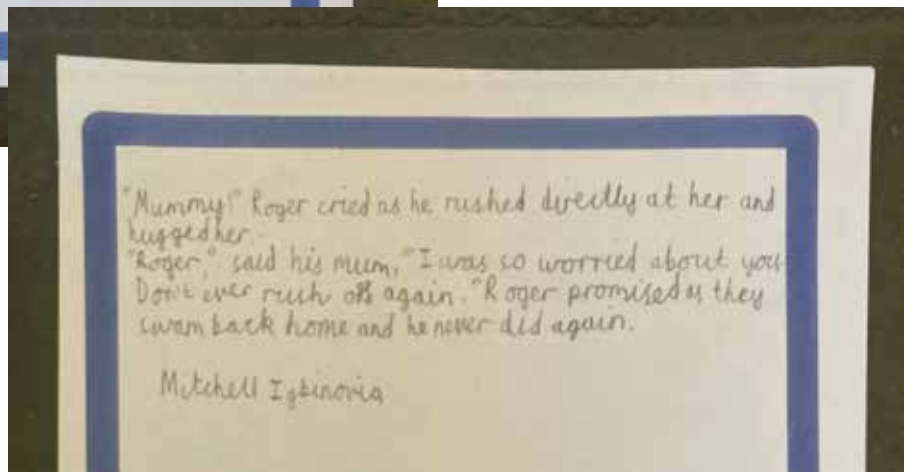 "Mummy!" Roger cried as he rushed directly at her and
hugged her.
"Roger," said his mum, "I was so worried about you
Don't ever rush off again. "Roger promised as they
swam back home and he never did again.
Mitchell Igbinovia